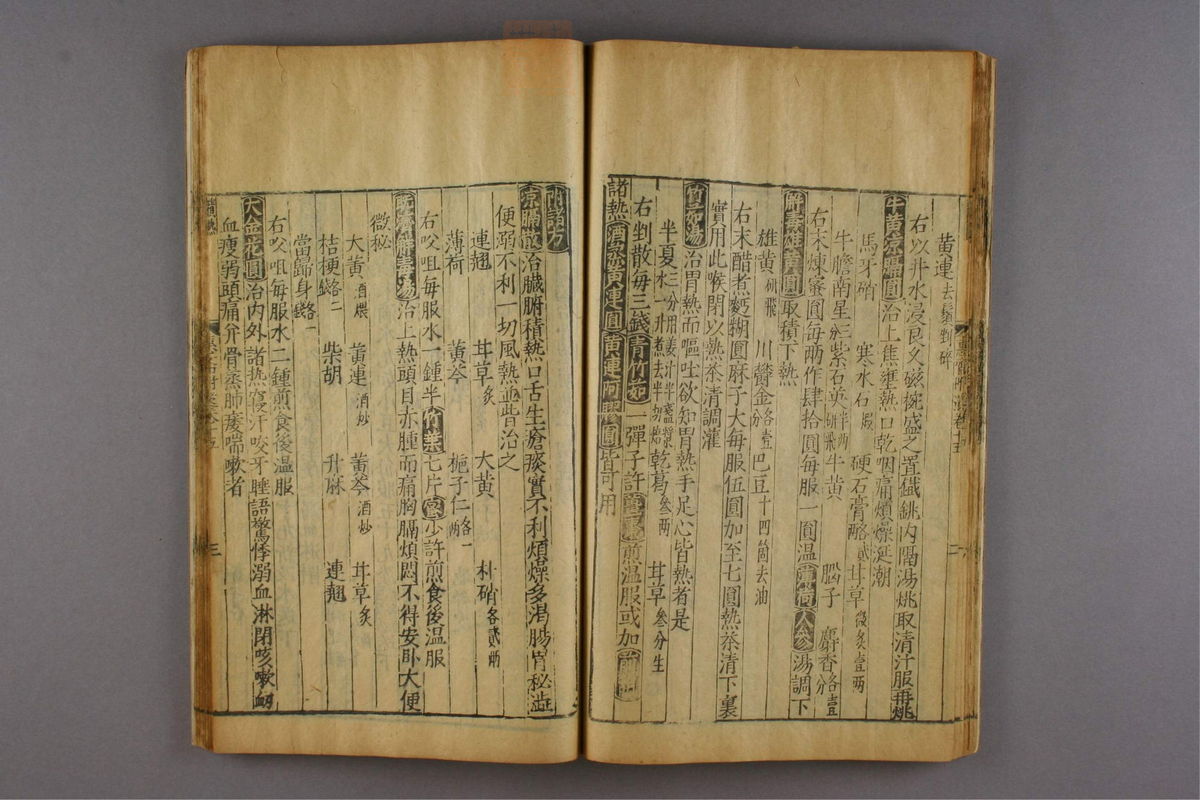 黃連去鬚剉碎
右以井水浸良久磁椀盛之置鐵銚內隔湯燒取清汁服再燒
牛黃凉膈圓治上焦壅熱口乾咽痛煩燥涎潮
馬牙硝 寒水石煆 硬石膏各貳兩 甘草微炙壹兩
牛膽南星 紫石英半兩研飛 牛黃 腦子 麝香各壹分
右末煉蜜圓每兩作肆拾圓每服一圓溫薄荷人參湯調下
解毒雄黃圓取積下熱
雄黃研飛 川鬱金各壹分 巴豆十四箇去油
右末醋煮麪糊圓麻子大每服伍圓加至七圓熱茶清下裏
實用此喉閉以熱茶清調灌
竹茹湯治胃熱而嘔吐欲知胃熱手足心皆熱者是
半夏三分用姜汁半盞漿水一升煮去半切焙 乾葛參兩 甘草參分生
右剉散每三錢青竹茹一彈子許煎溫服或加
諸熱酒蒸黃連圓黃連阿膠圓皆可用
附諸方
凉膈散治臟腑積熱口舌生瘡痰實不利煩燥多渴腸胃秘澁
便溺不利一切風熱並皆治之
連翹 甘草炙 大黃 朴硝各貳兩
薄荷 黃芩 梔子仁各一兩
右㕮咀每服水一鍾半竹葉七片蜜少許煎食後溫服
既濟解毒湯治上熱頭目赤腫而痛胸膈煩悶不得安卧大便
微秘
大黃酒煨 黃連酒炒 黃芩酒炒 甘草炙
桔梗各二錢 柴胡 升麻 連翹
當歸身各一錢
右㕮咀每服水二鍾煎食後溫服
大金花圓治內外諸熱寢汗咬牙睡語驚悸溺血淋閉咳嗽衂
血瘦弱頭痛并骨蒸肺痿喘嗽者